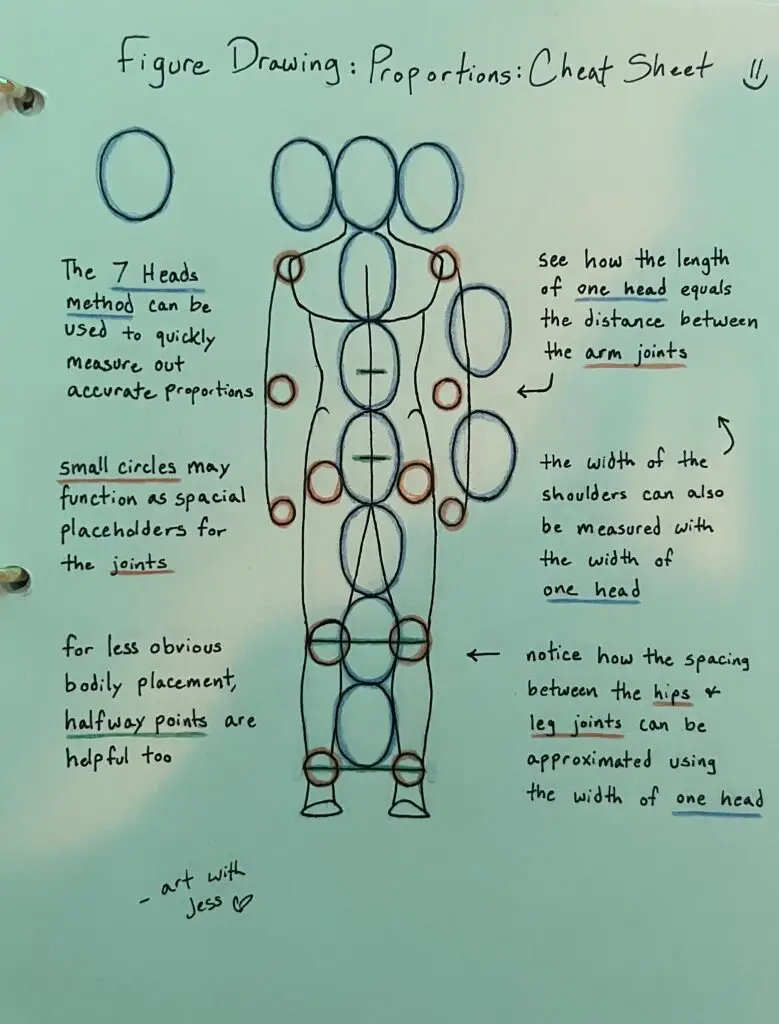 Figure Drawing: Proportions: Cheat Sheet
The 7 Heads
method can be
used to quickly
measure out
accurate proportions
small circles may
function as spacial
placeholders for
the joints
for less obvious
bodily placement,
halfway points are
helpful too
see how the length
of one head equals
the distance between
the arm joints
the width of the
shoulders can also
be measured with
the width of
one head
notice how the spacing
between the hips &
leg joints can be
approximated using
the width of one head
- art with
Jess